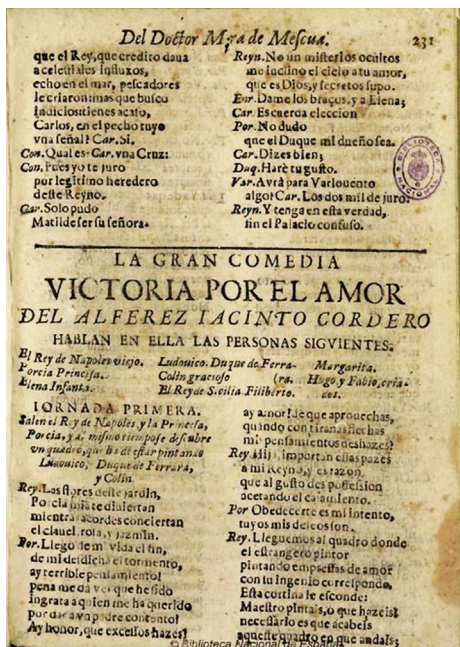 Del Doctor Mira de Mescua. 231
que el Rey, que credito daua
a celestiales influxos,
echo en el mar, pescadores
le criaron mas que busco
Indiciostienes acaso,
Carlos, en el pecho tuyo
vna señal? Car. Si.
Con. Qual es? Car. vna Cruz:
Con. Pues yo te juro
por legitimo heredero
deste Reyno.
Car. Solo pudo
Matilde ser su señora.
Reyn. No sin misterios ocultos
me inclino el cielo a tu amor,
que es Dios, y secretos supo.
Enr. Dame los braços, y a Elena;
Car. Es cuerda eleccion
Por. No dudo
que el Duque mi dueño sea.
Car. Dizes bien;
Duq. Harè tu gusto.
Var. Avrà para Varlouento
algo? Car. Los dos mil de juro.
Reyn. Y tenga en esta verdad,
fin el Palacio confuso.
BIBLIOTECA NACIONAL
LA GRAN COMEDIA
VICTORIA POR EL AMOR
DEL ALFEREZ IACINTO CORDERO
HABLAN EN ELLA LAS PERSONAS SIGVIENTES.
El Rey de Napoles viejo.
Porcia Princesa.
Elena Infanta.
Ludouico, Duque de Ferra-
Colin gracioso (ra.
El Rey de Sicilia Filiberto.
Margarita.
Hugo y Fabio, cria-
dos.
IORNADA PRIMERA.
Salen el Rey de Napoles, y la Princesa,
Porcia, y al mesmo tiempo se descubre
vn quadro, que ha de estar pintando
Ludouico, Duque de Ferrara,
y Colin.
Rey. Las flores deste jardin,
Porcia mia te diuiertan
mientras acordes conciertan
el clauel, rosa, y jazmin.
Por. Llegò de mi vida el fin,
de mi desdicha el tormento,
ay terrible pensamiento!
pena me da ver que he sido
ingrata a quien me ha querido
por dar a vn padre contento!
Ay honor, que excessos hazes!
ay amor! de que aprouechas,
quando con tiranas flechas
mis pensamientos deshazes!
Rey. Hija, importan estas pazes
a mi Reyno, y es razon,
que al gusto des possession
acetando el casamiento.
Por. Obedecerte es mi intento,
tuyos mis deseos son.
Rey. Lleguemos al quadro donde
el estrangero pintor
pintando empressas de amor
con tu ingenio corresponde,
Esta cortina le esconde:
Maestro pintais, o que hazeis!
necessario es que acabeis
aqueste quadro en que andais;
© Biblioteca Nacional de España